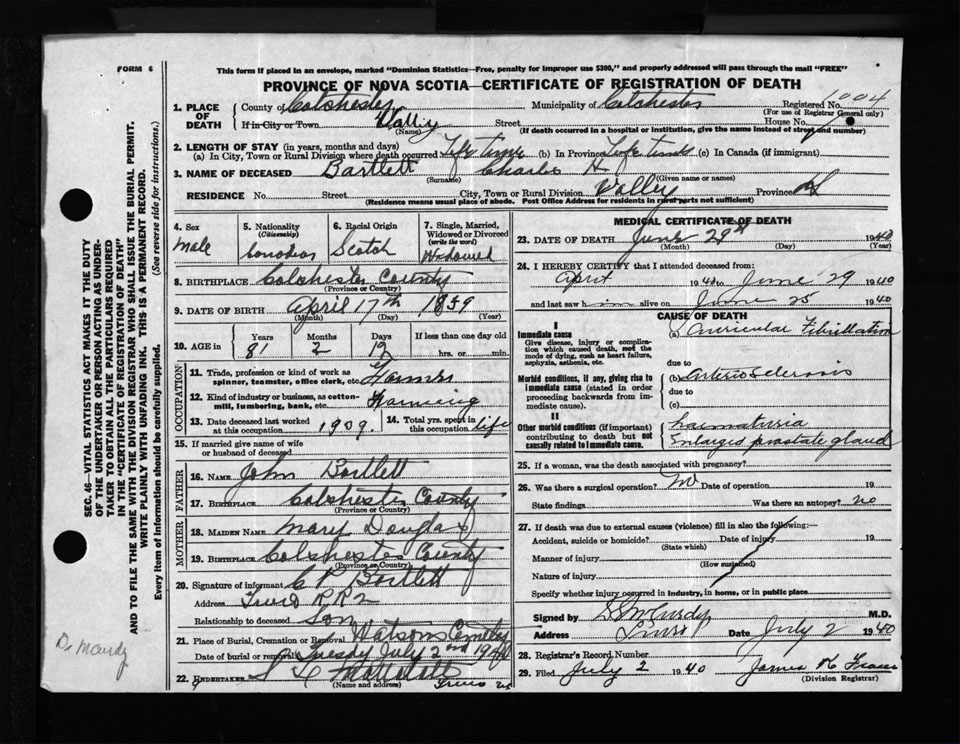 FORM 6
This form if placed in an envelope, marked "Dominion Statistics—Free, penalty for improper use $300," and properly addressed will pass through the mail "FREE"
PROVINCE OF NOVA SCOTIA—CERTIFICATE OF REGISTRATION OF DEATH
1. PLACE OF DEATH County of Colchester Municipality of Colchester Registered No. 1004
(For use of Registrar General only)
If in City or Town Valley Street House No.
(Name) (If death occurred in a hospital or institution, give the name instead of street and number)
2. LENGTH OF STAY (in years, months and days)
(a) In City, Town or Rural Division where death occurred Life time (b) In Province Life time (c) In Canada (if immigrant)
3. NAME OF DECEASED Bartlett Charles H
(Surname) (Given name or names)
RESIDENCE No. Street City, Town or Rural Division Valley Province NS
(Residence means usual place of abode. Post Office Address for residents in rural parts not sufficient)
4. Sex 5. Nationality (Citizenship) 6. Racial Origin 7. Single, Married, Widowed or Divorced (write the word)
male Canadian Scotch Widowed
8. BIRTHPLACE Colchester County
(Province or Country)
9. DATE OF BIRTH April 17th 1859
(Month) (Day) (Year)
10. AGE in Years Months Days If less than one day old
81 2 12 hrs. or min.
OCCUPATION
11. Trade, profession or kind of work as spinner, teamster, office clerk, etc. Farmer
12. Kind of industry or business, as cotton-mill, lumbering, bank, etc. Farming
13. Date deceased last worked at this occupation 1909. 14. Total yrs. spent in this occupation life
15. If married give name of wife or husband of deceased
FATHER
16. NAME John Bartlett
17. BIRTHPLACE Colchester County
(Province or Country)
MOTHER
18. MAIDEN NAME Mary Douglas
19. BIRTHPLACE Colchester County
(Province or Country)
20. Signature of informant C P Bartlett
Address Truro RR2
Relationship to deceased Son
21. Place of Burial, Cremation or Removal Watsons Cemetery
Date of burial or removal Tuesday July 2nd 1940
22. UNDERTAKER
(Name and address) Truro NS
MEDICAL CERTIFICATE OF DEATH
23. DATE OF DEATH June 29th 1940
(Month) (Day) (Year)
24. I HEREBY CERTIFY that I attended deceased from:
April 1940 to June 29 1940
and last saw h im alive on June 25 1940
CAUSE OF DEATH
I
Immediate cause
Give disease, injury or complication which caused death, not the mode of dying, such as heart failure, asphyxia, asthenia, etc.
(a) Auricular Fibrillation
due to
Morbid conditions, if any, giving rise to immediate cause (stated in order proceeding backwards from immediate cause).
(b) Arterio Sclerosis
due to
(c)
II
Other morbid conditions (if important) contributing to death but not causally related to immediate cause.
haematuria
Enlarged prostate gland
25. If a woman, was the death associated with pregnancy?
26. Was there a surgical operation? No Date of operation 19
State findings Was there an autopsy? no
27. If death was due to external causes (violence) fill in also the following:—
Accident, suicide or homicide? Date of injury 19
(State which)
Manner of injury
(How sustained)
Nature of injury
Specify whether injury occurred in industry, in home, or in public place
Signed by S McCurdy M.D.
Address Truro Date July 2 1940
28. Registrar's Record Number
29. Filed July 2 1940 James K Fraser
(Division Registrar)
SEC. 46—VITAL STATISTICS ACT MAKES IT THE DUTY
OF THE UNDERTAKER OR PERSON ACTING AS UNDER-
TAKER TO OBTAIN ALL THE PARTICULARS REQUIRED
IN THE "CERTIFICATE OF REGISTRATION OF DEATH"
AND TO FILE THE SAME WITH THE DIVISION REGISTRAR WHO SHALL ISSUE THE BURIAL PERMIT.
WRITE PLAINLY WITH UNFADING INK. THIS IS A PERMANENT RECORD.
Every item of information should be carefully supplied. (See reverse side for instructions.)
Dr McCurdy